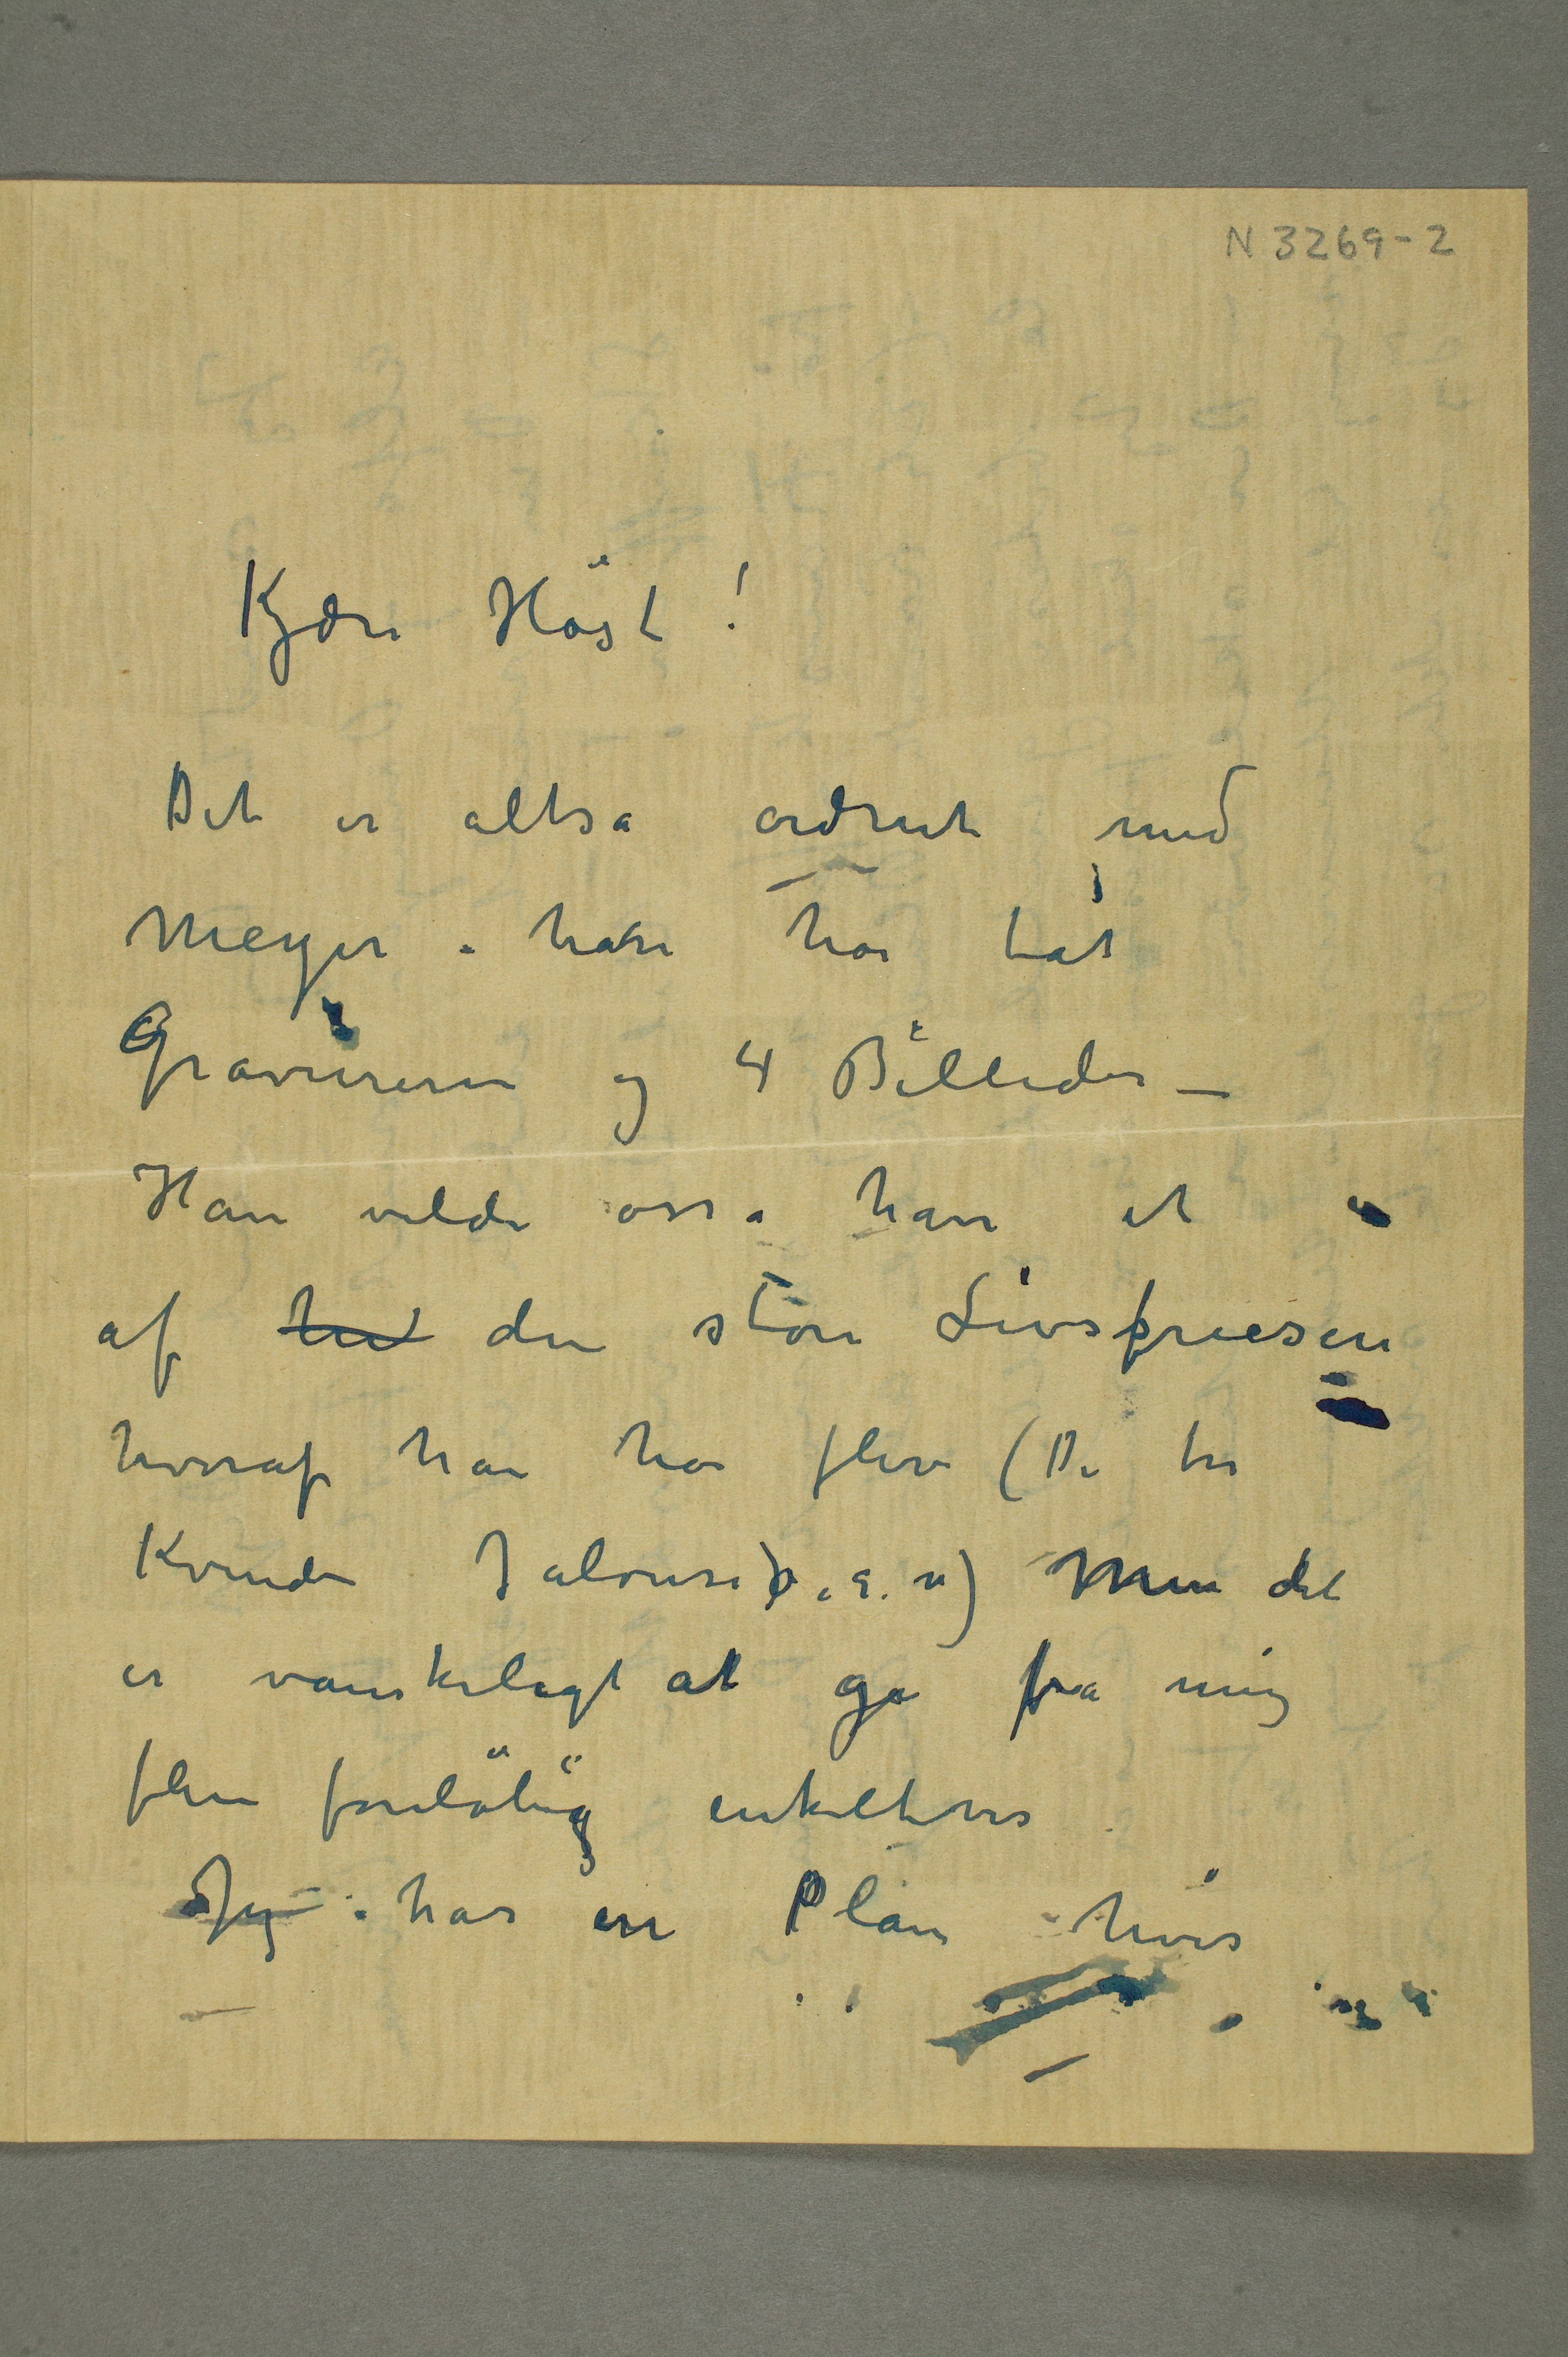 N 3269-2
Kjære Höst!
Det er altså ordnet med
Meyer. han har tat
Gravureren og 4 Billeder –
Han vilde osså have et
af den store Livsfriesen
hvoraf han har flere (De tre
Kvinder Jalousi o. s. v) Men det
er vanskeligt at gå fra mig
flere foreløbig enkeltvis
Jeg har en Plan hvis